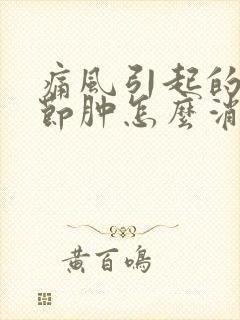 痛风引起的
節肿怎麽消
黄百鸣